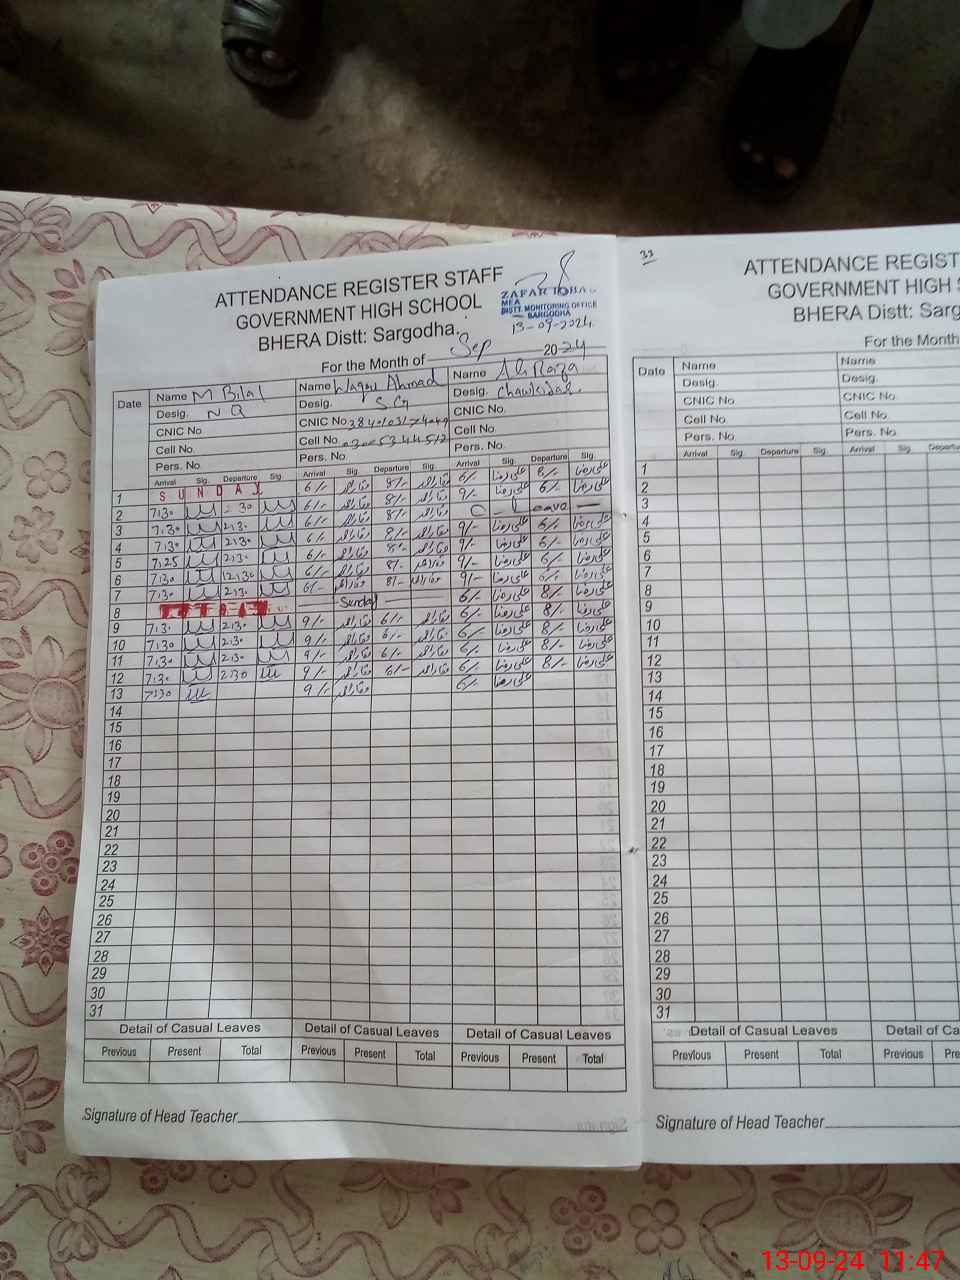 ATTENDANCE REGISTER STAFF
GOVERNMENT HIGH SCHOOL
BHERA Distt: Sargodha.
ZAFAR IQBAL
MEA
DISTT. MONITORING OFFICE
SARGODHA
13-09-2024
For the Month of Sep 2024
Date Name M Bilal Name Waqar Ahmad Name Ali Raza
Desig. N Q Desig. S.G Desig. Chawkidar
CNIC No. CNIC No. CNIC No.
Cell No. Cell No. 03005344512 Cell No.
Pers. No. Pers. No. Pers. No.
Arrival Sig. Departure Sig. Arrival Sig. Departure Sig. Arrival Sig. Departure Sig.
1 SUNDAY 6/- 8/- 6/- علی رضا 8/- علی رضا
2 7:30 2:30 6/- 8/- 9/- علی رضا 6/- علی رضا
3 7:30 2:30 6/- 8/- C - Leave -
4 7:30 2:30 6/- 8/- 9/- علی رضا 6/- علی رضا
5 7:25 2:30 6/- 8/- 9/- علی رضا 6/- علی رضا
6 7:30 12:30 6/- 8/- 9/- علی رضا 6/- علی رضا
7 7:30 2:30 6/- 8/- 9/- علی رضا 6/- علی رضا
8 Sunday 6/- علی رضا 8/- علی رضا
9 7:30 2:30 9/- 6/- 6/- علی رضا 8/- علی رضا
10 7:30 2:30 9/- 6/- 6/- علی رضا 8/- علی رضا
11 7:30 2:30 9/- 6/- 6/- علی رضا 8/- علی رضا
12 7:30 2:30 9/- 6/- 6/- علی رضا 8/- علی رضا
13 7:30 9/- 6/- علی رضا
14
15
16
17
18
19
20
21
22
23
24
25
26
27
28
29
30
31
Detail of Casual Leaves Detail of Casual Leaves Detail of Casual Leaves
Previous Present Total Previous Present Total Previous Present Total
Signature of Head Teacher
33
ATTENDANCE REGIST
GOVERNMENT HIGH S
BHERA Distt: Sarg
For the Month
Date Name Name
Desig. Desig.
CNIC No. CNIC No.
Cell No. Cell No.
Pers. No. Pers. No.
Arrival Sig. Departure Sig. Arrival Sig. Departu
1
2
3
4
5
6
7
8
9
10
11
12
13
14
15
16
17
18
19
20
21
22
23
24
25
26
27
28
29
30
31
Detail of Casual Leaves Detail of Ca
Previous Present Total Previous Pre
Signature of Head Teacher
13-09-24 11:47